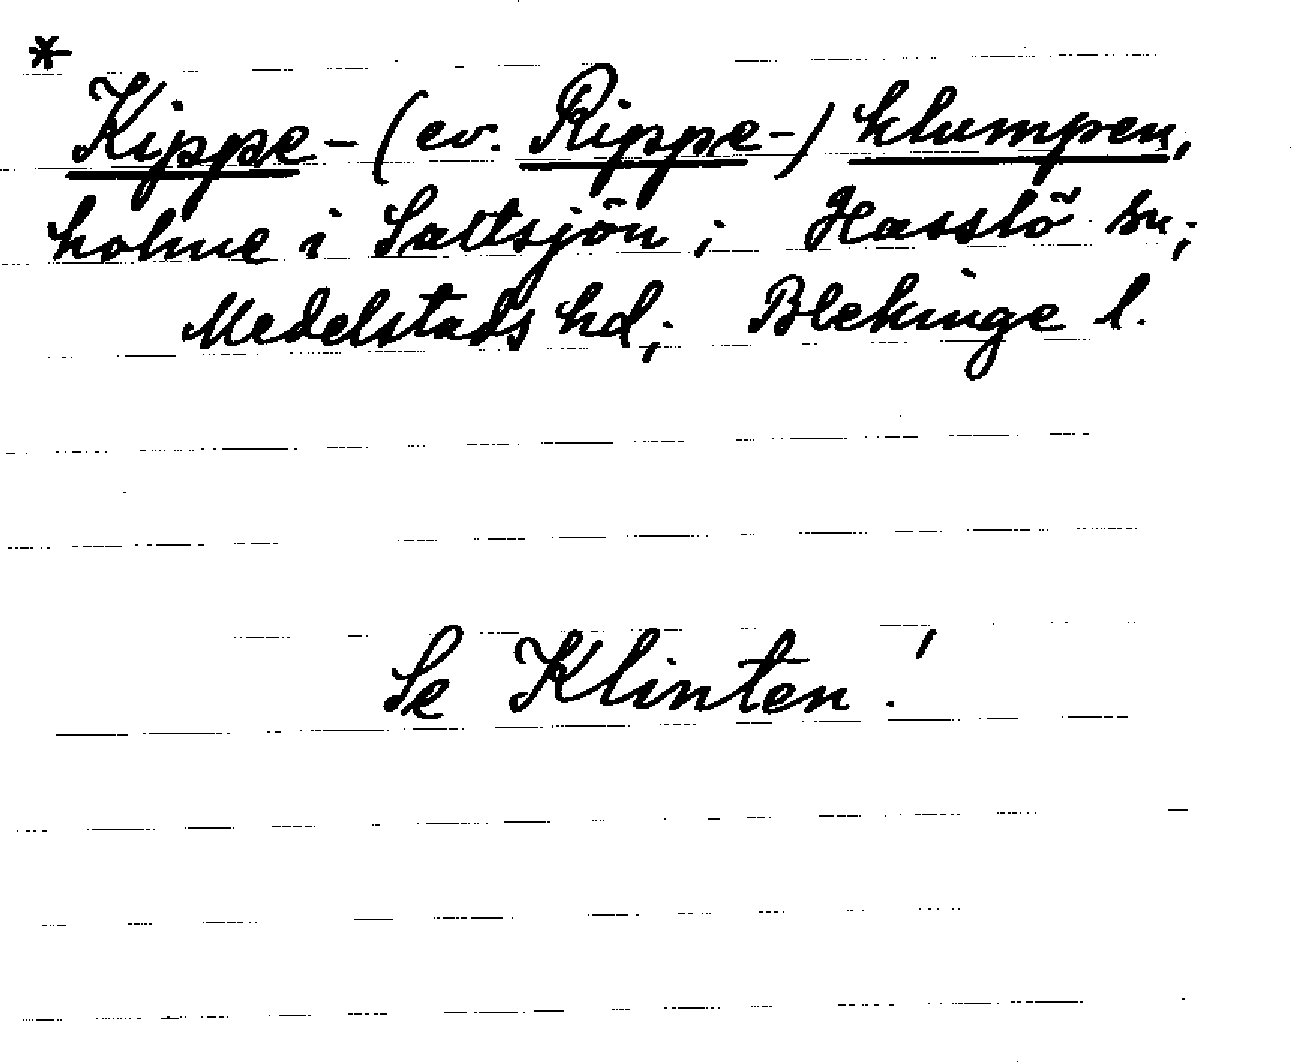 *
Kippe- (ev. Rippe-) klumpen,
holme i Saltsjön; Hasslö sn;
Medelstads hd; Blekinge l.
Se Klinten!